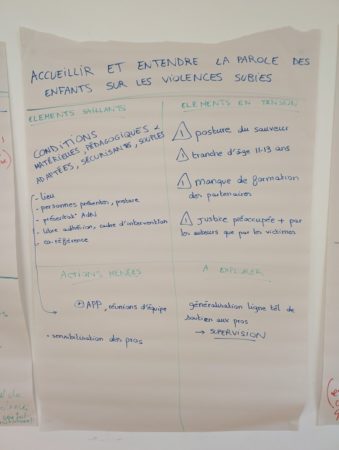 ACCUEILLIR ET ENTENDRE LA PAROLE DES
ENFANTS SUR LES VIOLENCES SUBIES
ELEMENTS SAILLANTS
CONDITIONS
MATÉRIELLES, PÉDAGOGIQUES &
ADAPTÉES, SÉCURISANTES, SOUPLES
- lieu
- personnes présentes, posture
- libre adhésion, cadre d'intervention
- co-référence
ELEMENTS EN TENSION
! posture du sauveur
! tranche d'âge 11-13 ans
! manque de formation
des partenaires
! justice préoccupée + par
les auteurs que par les victimes
ACTIONS MENÉES
APP, réunions d'équipe
- sensibilisation des pros
A EXPLORER
généralisation ligne tél de
soutien aux pros
→ SUPERVISION